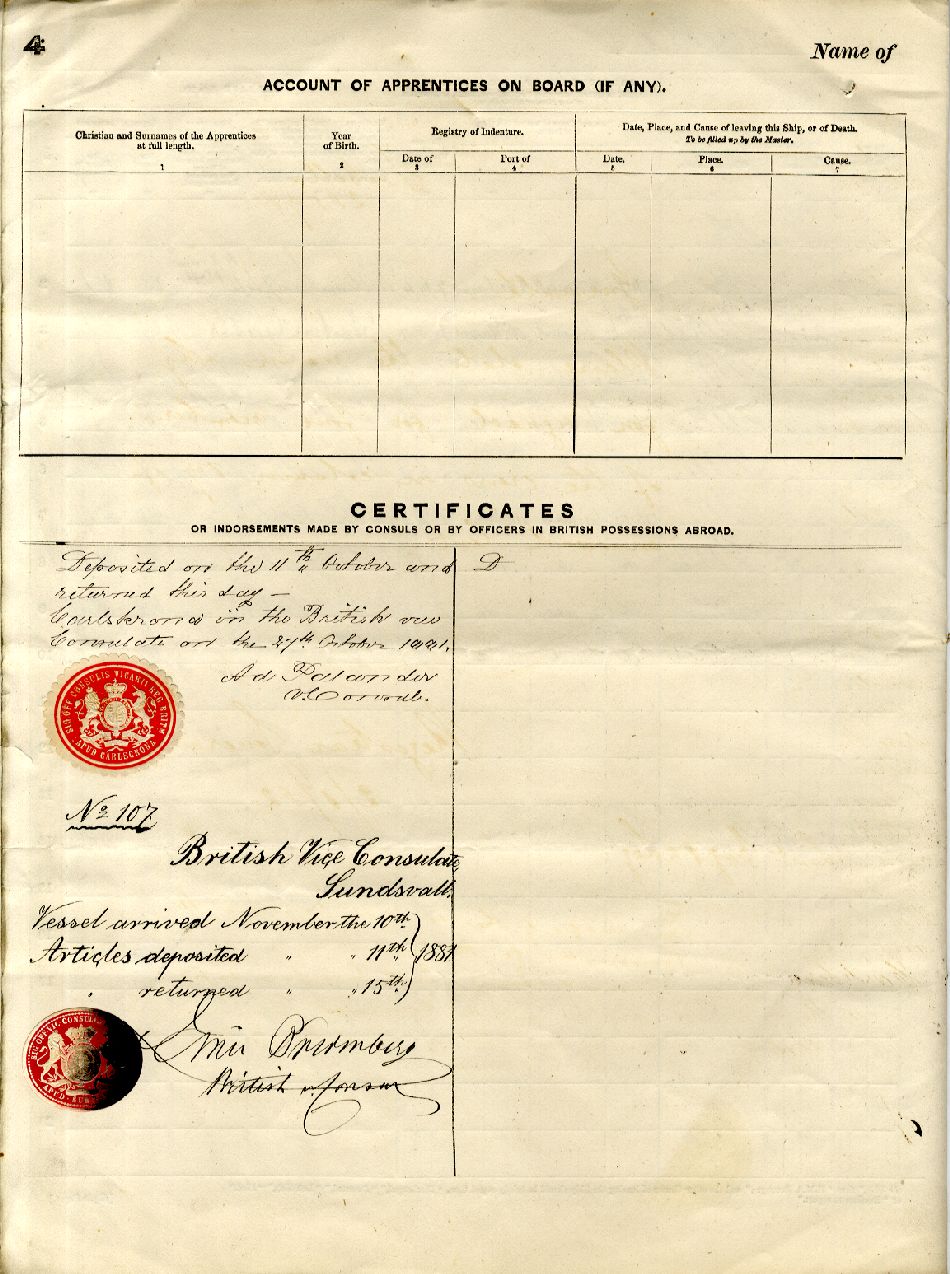 4
Name of
ACCOUNT OF APPRENTICES ON BOARD (IF ANY).
Christian and Surnames of the Apprentices
at full length.
1
Year
of Birth.
2
Registry of Indenture.
Date of
3
Port of
4
Date, Place, and Cause of leaving this Ship, or of Death.
To be filled up by the Master.
Date.
5
Place.
6
Cause.
7
CERTIFICATES
OR INDORSEMENTS MADE BY CONSULS OR BY OFFICERS IN BRITISH POSSESSIONS ABROAD.
Deposited on the 11th October and
returned this day –
Carlskrona in the British vice
Consulate on the 27th October 1881.
Ad Palander
V. Consul.
D
SIG OFF CONSULIS VICARII REG BRITN
APUD CARLSCRONA
No 107
British Vice Consulate,
Sundsvall.
Vessel arrived November the 10th
Articles deposited " " 11th 1881
" returned " " 15th
SIG OFF VIC CONSUL
APUD
British